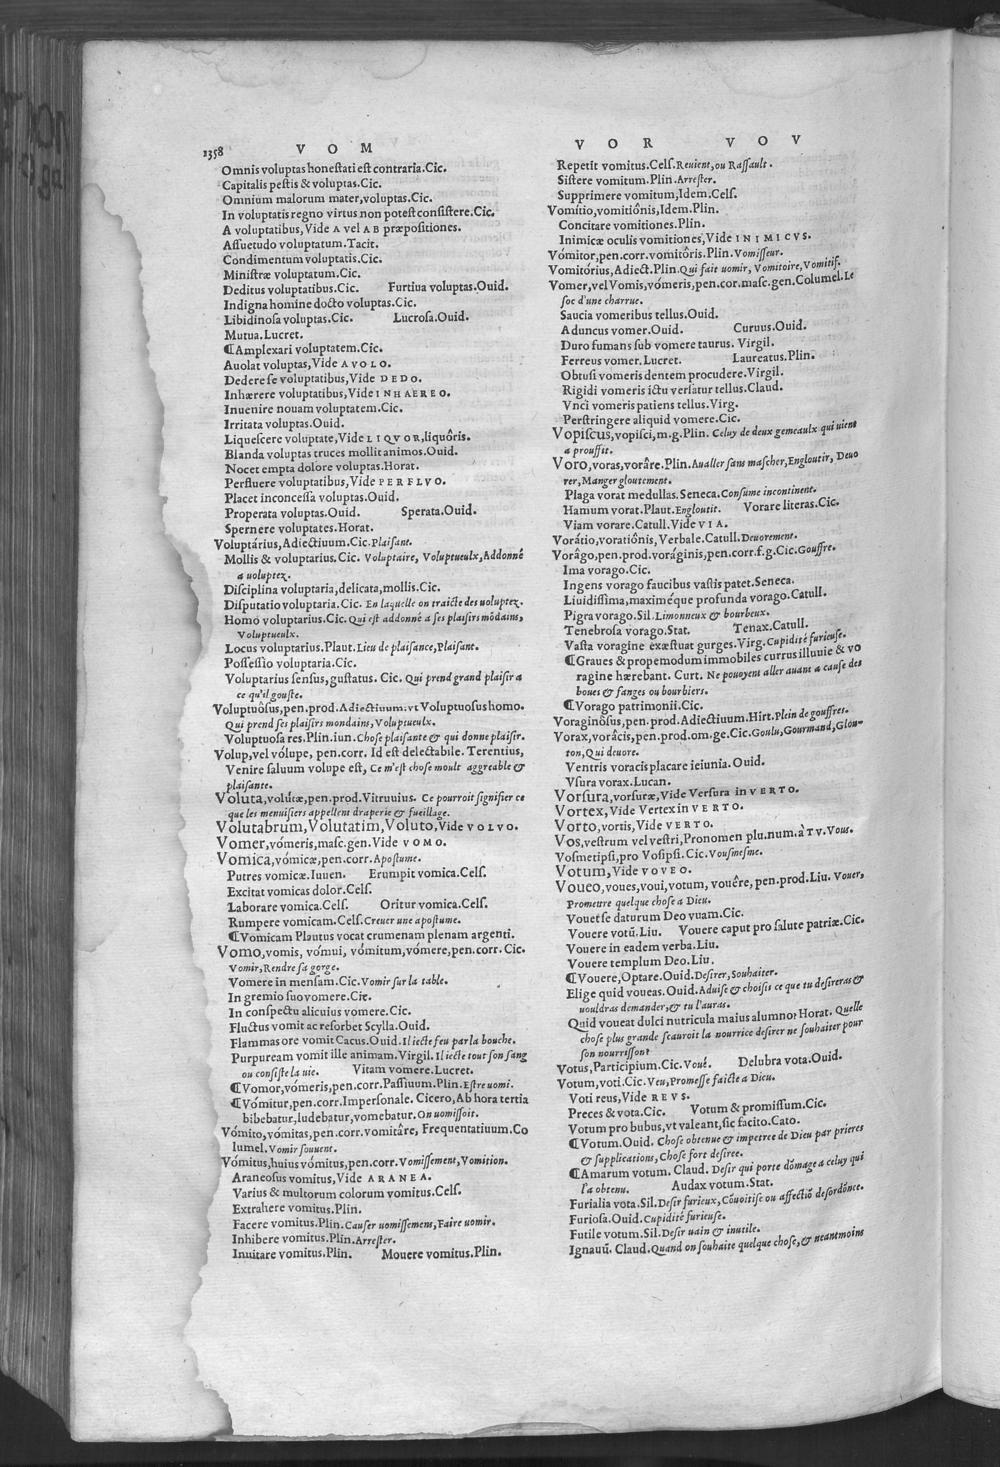 1358 V O M
Omnis voluptas honeſtati eſt contraria.Cic.
Capitalis peſtis & voluptas.Cic.
Omnium malorum mater,voluptas.Cic.
In voluptatis regno virtus non poteſt conſiſtere.Cic.
A voluptatibus, Vide A vel A B præpoſitiones.
Aſſuetudo voluptatum.Tacit.
Condimentum voluptatis.Cic.
Miniſtræ voluptatum.Cic.
Deditus voluptatibus.Cic. Furtiua voluptas.Ouid.
Indigna homine docto voluptas.Cic.
Libidinoſa voluptas.Cic. Lucroſa.Ouid.
Mutua.Lucret.
¶Amplexari voluptatem.Cic.
Auolat voluptas,Vide A V O L O.
Dedere ſe voluptatibus,Vide D E D O.
Inhærere voluptatibus,Vide I N H A E R E O.
Inuenire nouam voluptatem.Cic.
Irritata voluptas.Ouid.
Liqueſcere voluptate,Vide L I Q V O R,liquôris.
Blanda voluptas truces mollit animos.Ouid.
Nocet empta dolore voluptas.Horat.
Perfluere voluptatibus,Vide P E R F L V O.
Placet inconceſſa voluptas.Ouid.
Properata voluptas.Ouid. Sperata.Ouid.
Spernere voluptates.Horat.
Voluptárius,Adiectiuum.Cic.Plaiſant.
Mollis & voluptarius.Cic. Voluptaire, Voluptueulx,Addonné
a voluptez.
Diſciplina voluptaria,delicata,mollis.Cic.
Diſputatio voluptaria.Cic. En laquelle on traicte des uoluptez.
Homo voluptarius.Cic. Qui eſt addonné a ſes plaiſirs mõdains,
Voluptueulx.
Locus voluptarius.Plaut.Lieu de plaiſance,Plaiſant.
Poſſeſſio voluptaria.Cic.
Voluptarius ſenſus,guſtatus. Cic. Qui prend grand plaiſir a
ce qu'il gouſte.
Voluptuôſus,pen.prod.Adiectiuum.vt Voluptuoſus homo.
Qui prend ſes plaiſirs mondains,Voluptueulx.
Voluptuoſa res.Plin.iun.Choſe plaiſante & qui donne plaiſir.
Volup,vel vólupe, pen.corr. Id eſt delectabile. Terentius,
Venire ſaluum volupe eſt, Ce m'eſt choſe moult aggreable &
plaiſante.
Voluta,volútæ,pen.prod.Vitruuius. Ce pourroit ſignifier ce
que les menuiſiers appellent draperie & fueillage.
Volutabrum,Volutatim,Voluto,Vide V O L V O.
Vomer,vómeris,maſc.gen.Vide V O M O.
Vomica,vómicæ,pen.corr.Apoſtume.
Putres vomicæ.Iuuen. Erumpit vomica.Celſ.
Excitat vomicas dolor.Celſ.
Laborare vomica.Celſ. Oritur vomica.Celſ.
Rumpere vomicam.Celſ.Creuer une apoſtume.
¶Vomicam Plautus vocat crumenam plenam argenti.
Vomo,vomis, vómui, vómitum,vómere,pen.corr. Cic.
Vomir,Rendre ſa gorge.
Vomere in menſam.Cic.Vomir ſur la table.
In gremio ſuo vomere.Cic.
In conſpectu alicuius vomere.Cic.
Fluctus vomit ac reſorbet Scylla.Ouid.
Flammas ore vomit Cacus.Ouid.Il iecte feu par la bouche.
Purpuream vomit ille animam.Virgil.Il iecte tout ſon ſang
ou conſiſte la uie. Vitam vomere.Lucret.
¶Vomor,vómeris,pen.corr.Paſſiuum.Plin.Eſtre uomi.
¶Vómitur,pen.corr.Imperſonale. Cicero,Ab hora tertia
bibebatur,ludebatur,vomebatur.On uomiſſoit.
Vómito,vómitas,pen.corr.vomitâre, Frequentatiuum.Co
lumel.Vomir ſouuent.
Vómitus,huius vómitus,pen.corr.Vomiſſement,Vomition.
Araneoſus vomitus,Vide A R A N E A.
Varius & multorum colorum vomitus.Celſ.
Extrahere vomitus.Plin.
Facere vomitus.Plin.Cauſer uomiſſemens,Faire uomir.
Inhibere vomitus.Plin.Arreſter.
Inuitare vomitus.Plin. Mouere vomitus.Plin.
V O R V O V
Repetit vomitus.Celſ.Reuient,ou Raſſault.
Siſtere vomitum.Plin.Arreſter.
Supprimere vomitum,Idem.Celſ.
Vomítio,vomitiônis,Idem.Plin.
Concitare vomitiones.Plin.
Inimicæ oculis vomitiones,Vide I N I M I C V S.
Vómitor,pen.corr.vomitôris.Plin.Vomiſſeur.
Vomitórius,Adiect.Plin.Qui fait uomir, Vomitoire,Vomitif.
Vomer,vel Vomis,vómeris,pen.cor.maſc.gen.Columel.Le
ſoc d'une charrue.
Saucia vomeribus tellus.Ouid.
Aduncus vomer.Ouid. Curuus.Ouid.
Duro fumans ſub vomere taurus. Virgil.
Ferreus vomer.Lucret. Laureatus.Plin.
Obtuſi vomeris dentem procudere.Virgil.
Rigidi vomeris ictu verſatur tellus.Claud.
Vnci vomeris patiens tellus.Virg.
Perſtringere aliquid vomere.Cic.
Vopiſcus,vopiſci,m.g.Plin. Celuy de deux gemeaulx qui uient
a prouffit.
Voro,voras,vorâre.Plin.Aualler ſans maſcher,Engloutir, Deuo
rer,Manger gloutement.
Plaga vorat medullas.Seneca.Conſume incontinent.
Hamum vorat.Plaut.Engloutit. Vorare literas.Cic.
Viam vorare.Catull.Vide V I A.
Vorátio,vorationis,Verbale.Catull.Deuorement.
Vorâgo,pen.prod.voráginis,pen.corr.f.g.Cic.Gouffre.
Ima vorago.Cic.
Ingens vorago faucibus vaſtis patet.Seneca.
Liuidiſſima,maximéque profunda vorago.Catull.
Pigra vorago.Sil.Limonneux & bourbeux.
Tenebroſa vorago.Stat. Tenax.Catull.
Vaſta voragine exæſtuat gurges.Virg.Cupidité furieuſe.
¶Graues & propemodum immobiles currus illuuie & vo
ragine hærebant. Curt. Ne pouoyent aller auant a cauſe des
boues & fanges ou bourbiers.
¶Vorago patrimonii.Cic.
Voraginôſus,pen.prod.Adiectiuum.Hirt.Plein de gouffres.
Vorax,vorâcis,pen.prod.om.ge.Cic.Goulu,Gourmand,Glou-
ton,Qui deuore.
Ventris voracis placare ieiunia.Ouid.
Vſura vorax.Lucan.
Vorſura,vorſuræ,Vide Verſura in V E R T O.
Vortex,Vide Vertex in V E R T O.
Vorto,vortis,Vide V E R T O.
Vos,veſtrum vel veſtri,Pronomen plu.num.à T V.Vous.
Voſmetipſi,pro Voſipſi.Cic.Vouſmeſme.
Votum,Vide V O V E O.
Voueo,voues,voui,votum, vouêre,pen.prod.Liu. Vouer,
Promettre quelque choſe a Dieu.
Vouet ſe daturum Deo vuam.Cic.
Vouere votũ.Liu. Vouere caput pro ſalute patriæ.Cic.
Vouere in eadem verba.Liu.
Vouere templum Deo.Liu.
¶Vouere,Optare.Ouid.Deſirer,Souhaiter.
Elige quid voueas.Ouid.Aduiſe & choiſis ce que tu deſireras &
uouldras demander,& tu l'auras.
Quid voueat dulci nutricula maius alumno? Horat. Quelle
choſe plus grande ſcauroit la nourrice deſirer ne ſouhaiter pour
ſon nourriſſon?
Votus,Participium.Cic.Voué. Delubra vota.Ouid.
Votum,voti.Cic.Veu,Promeſſe faicte a Dieu.
Voti reus,Vide R E V S.
Preces & vota.Cic. Votum & promiſſum.Cic.
Votum pro bubus,vt valeant,ſic facito.Cato.
¶Votum.Ouid. Choſe obtenue & impetree de Dieu par prieres
& ſupplications, Choſe fort deſiree.
¶Amarum votum. Claud. Deſir qui porte dõmage a celuy qui
l'a obtenu. Audax votum.Stat.
Furialia vota.Sil.Deſir furieux, Cõuoitiſe ou affectiõ deſordõnce.
Furioſa.Ouid.Cupidité furieuſe.
Futile votum.Sil.Deſir uain & inutile.
Ignauũ. Claud.Quand on ſouhaite quelque choſe,& neantmoins